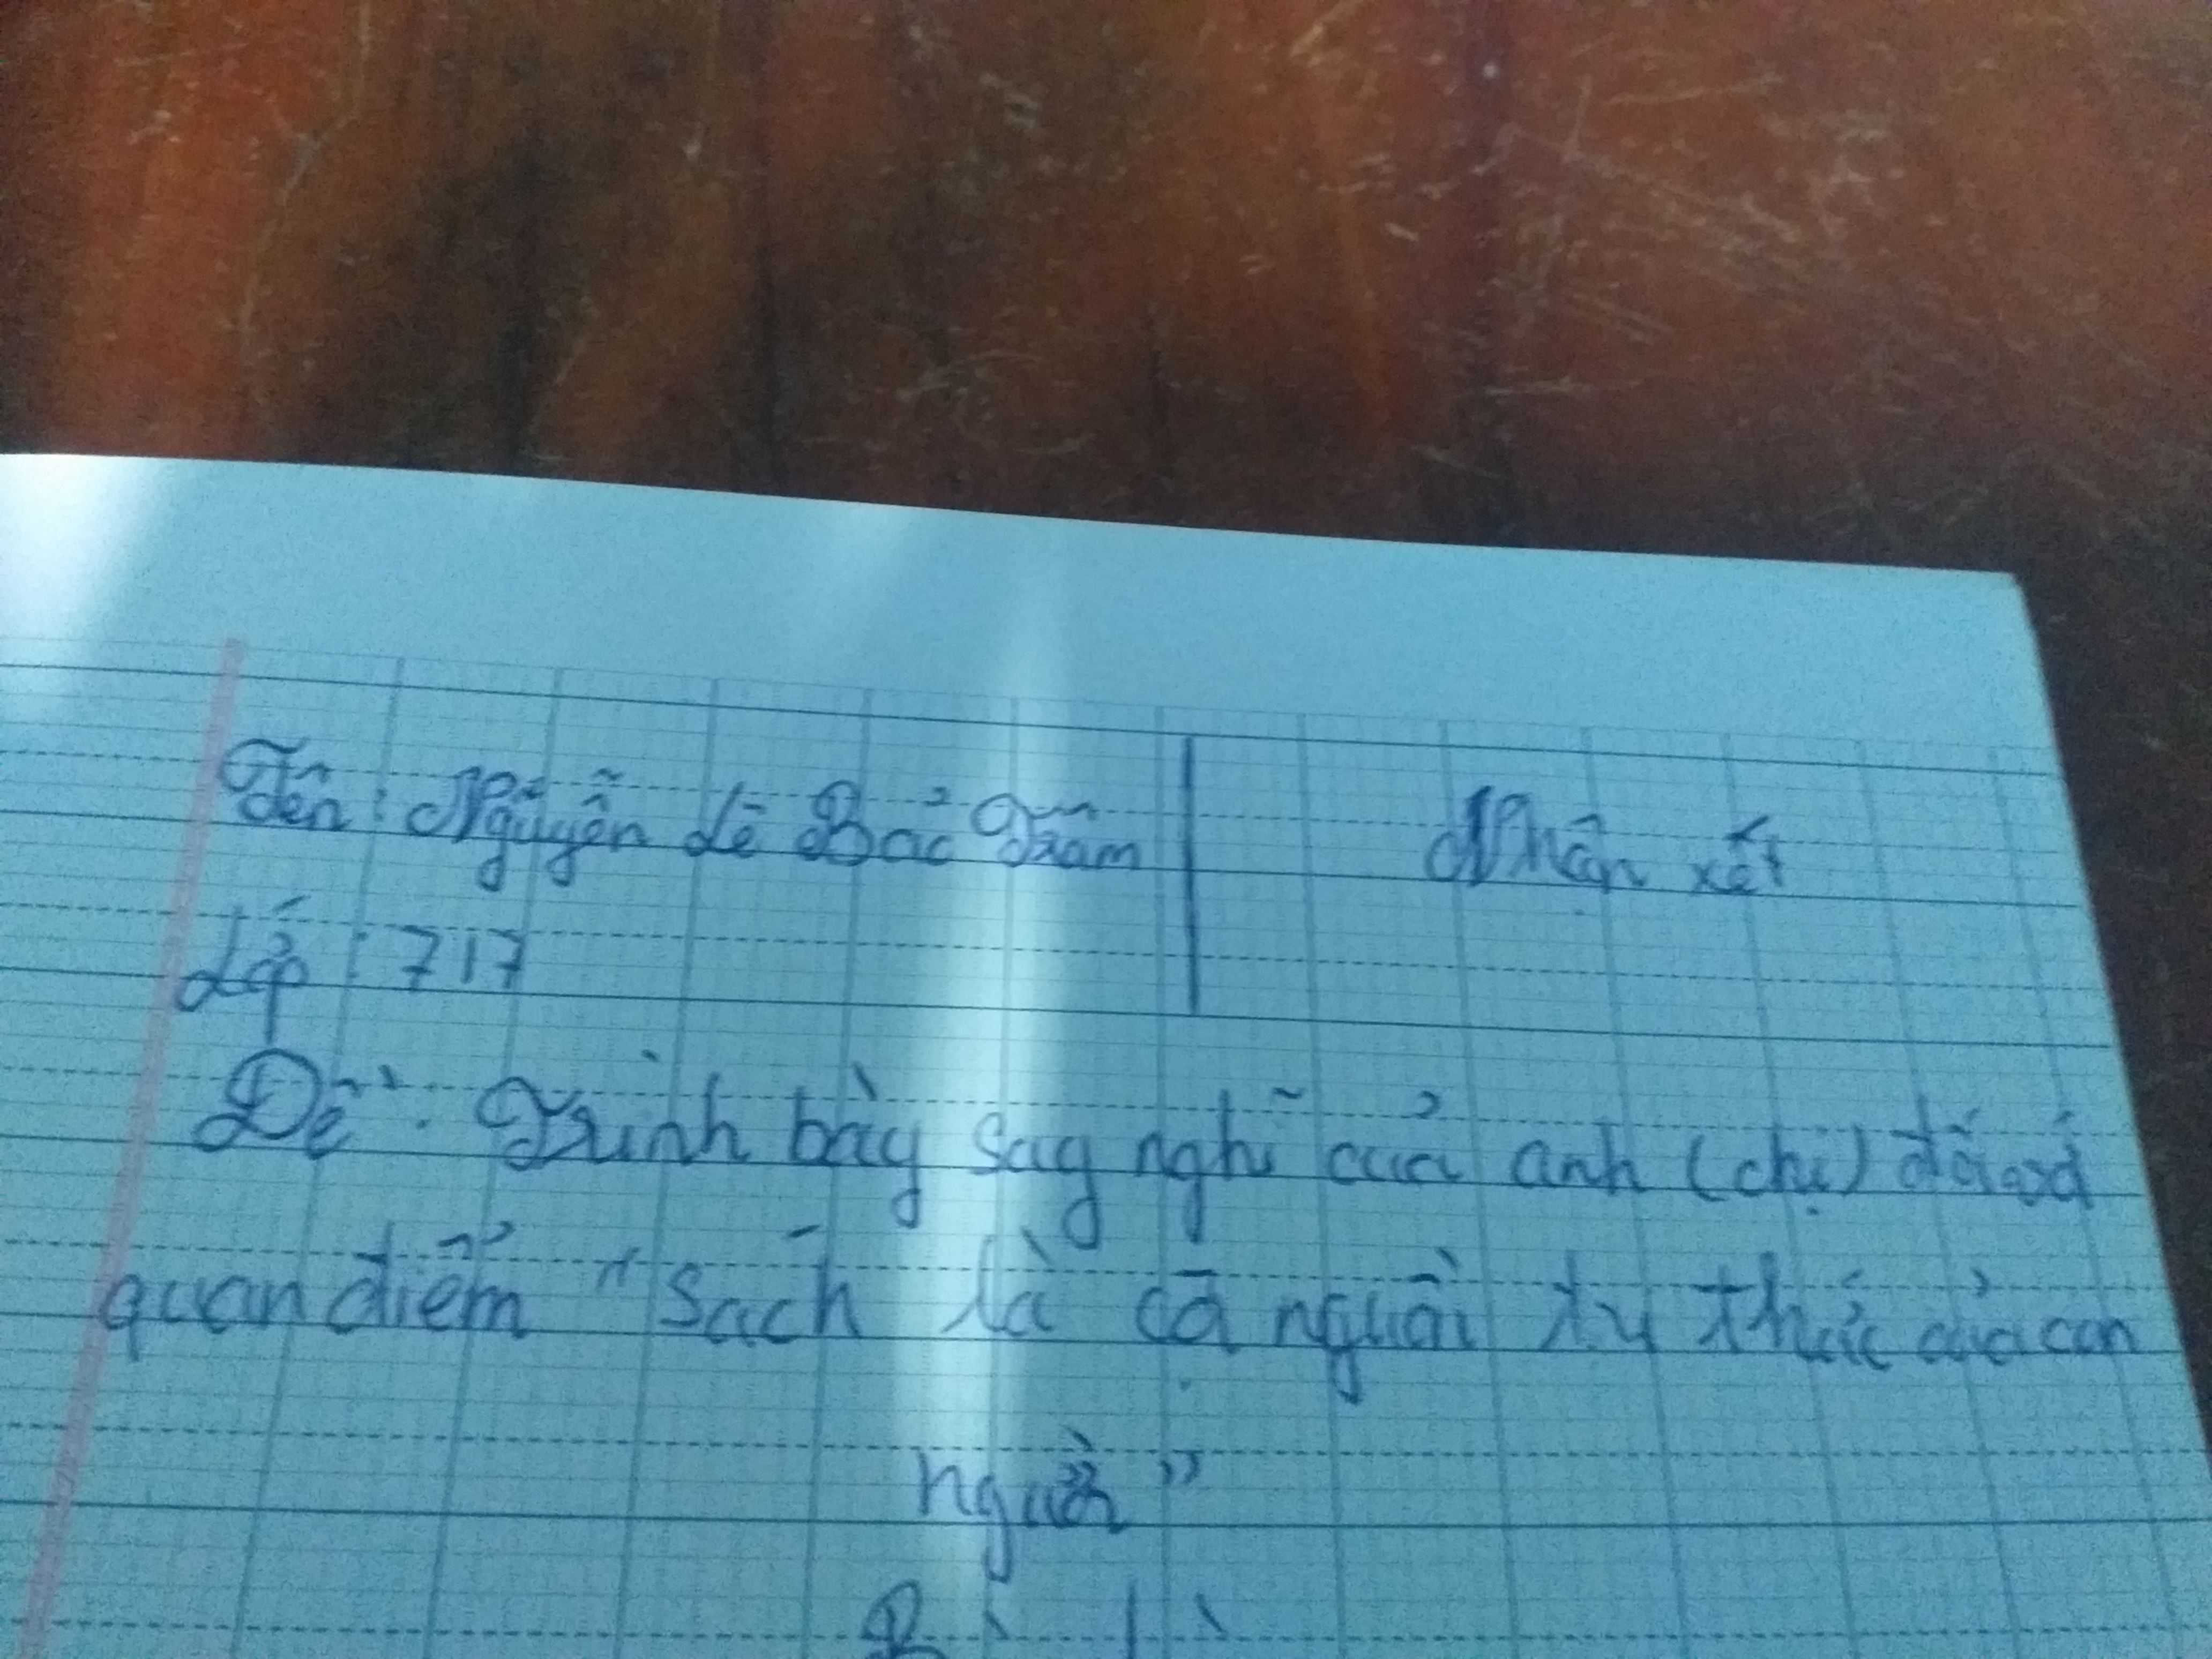 Tên : Nguyễn Lê Bảo Trâm Nhận xét
Lớp : 717
Đề : Trình bày say nghĩ của anh (chị) đối với
quan điểm "Sách là cả nguồn try thức của con
người"
Bài làm